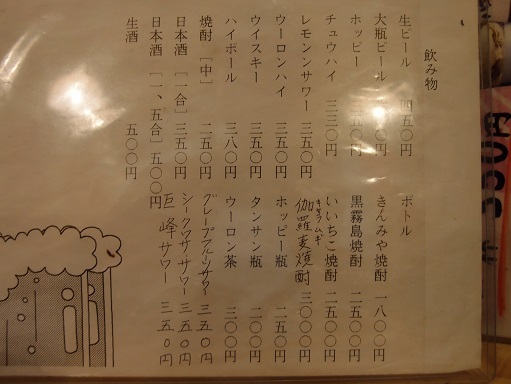 飲み物
生ビール 四五〇円
大瓶ビール 〇円
ホッピー 〇円
チュウハイ 三三〇円
レモンサワー 三五〇円
ウーロンハイ 三五〇円
ウイスキー 三五〇円
ハイボール 三八〇円
焼酎［中］ 二五〇円
日本酒［一合］ 三五〇円
日本酒［一、五合］ 五〇〇円
生酒 五〇〇円
ボトル
きんみや焼酎 一八〇〇円
黒霧島焼酎 二五〇〇円
いいちこ焼酎 二五〇〇円
伽羅麦焼酎 三〇〇〇円
キャラムギ
ホッピー瓶 二五〇円
タンサン瓶 二〇〇円
ウーロン茶 三〇〇円
グレープフルーツサワー 三五〇円
シークワーサーサワー 三五〇円
巨峰サワー 三五〇円
BOSS